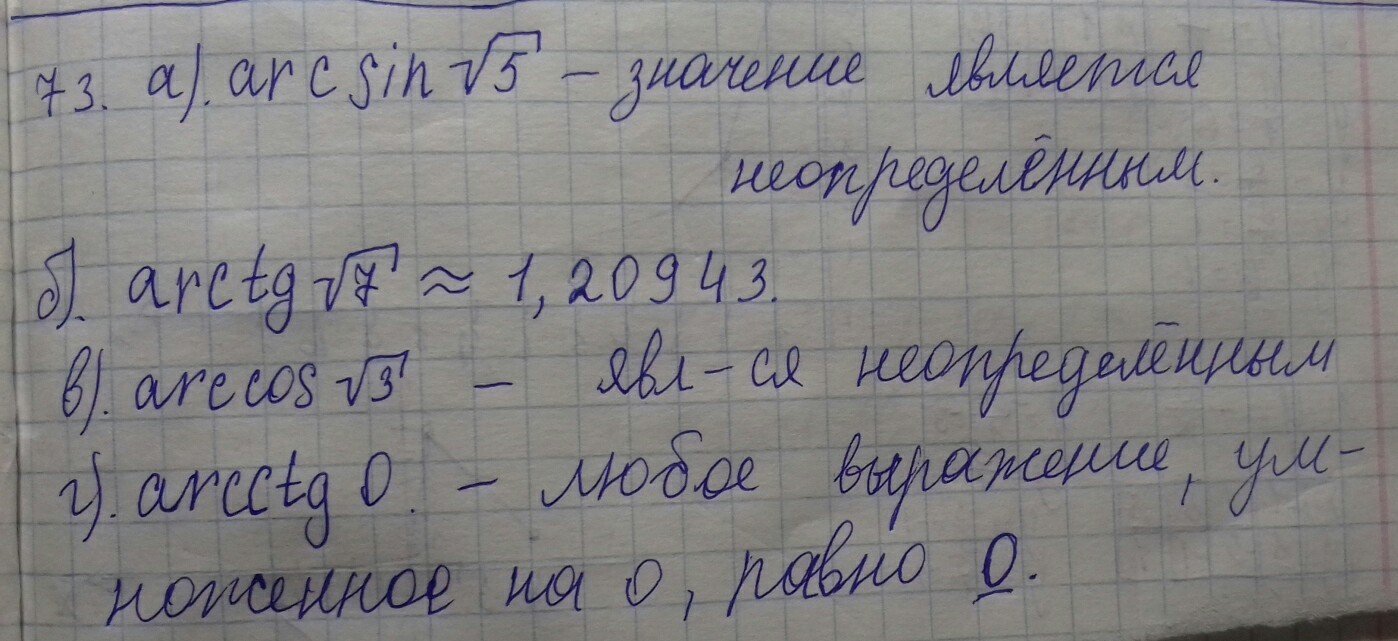 73. а). arcsin √5 – значение является
неопределённым.
б). arctg √7 ≈ 1,20943.
в). arccos √3 – явл-ся неопределённым
г). arcctg 0. – любое выражение, ум-
ноженное на 0, равно 0.